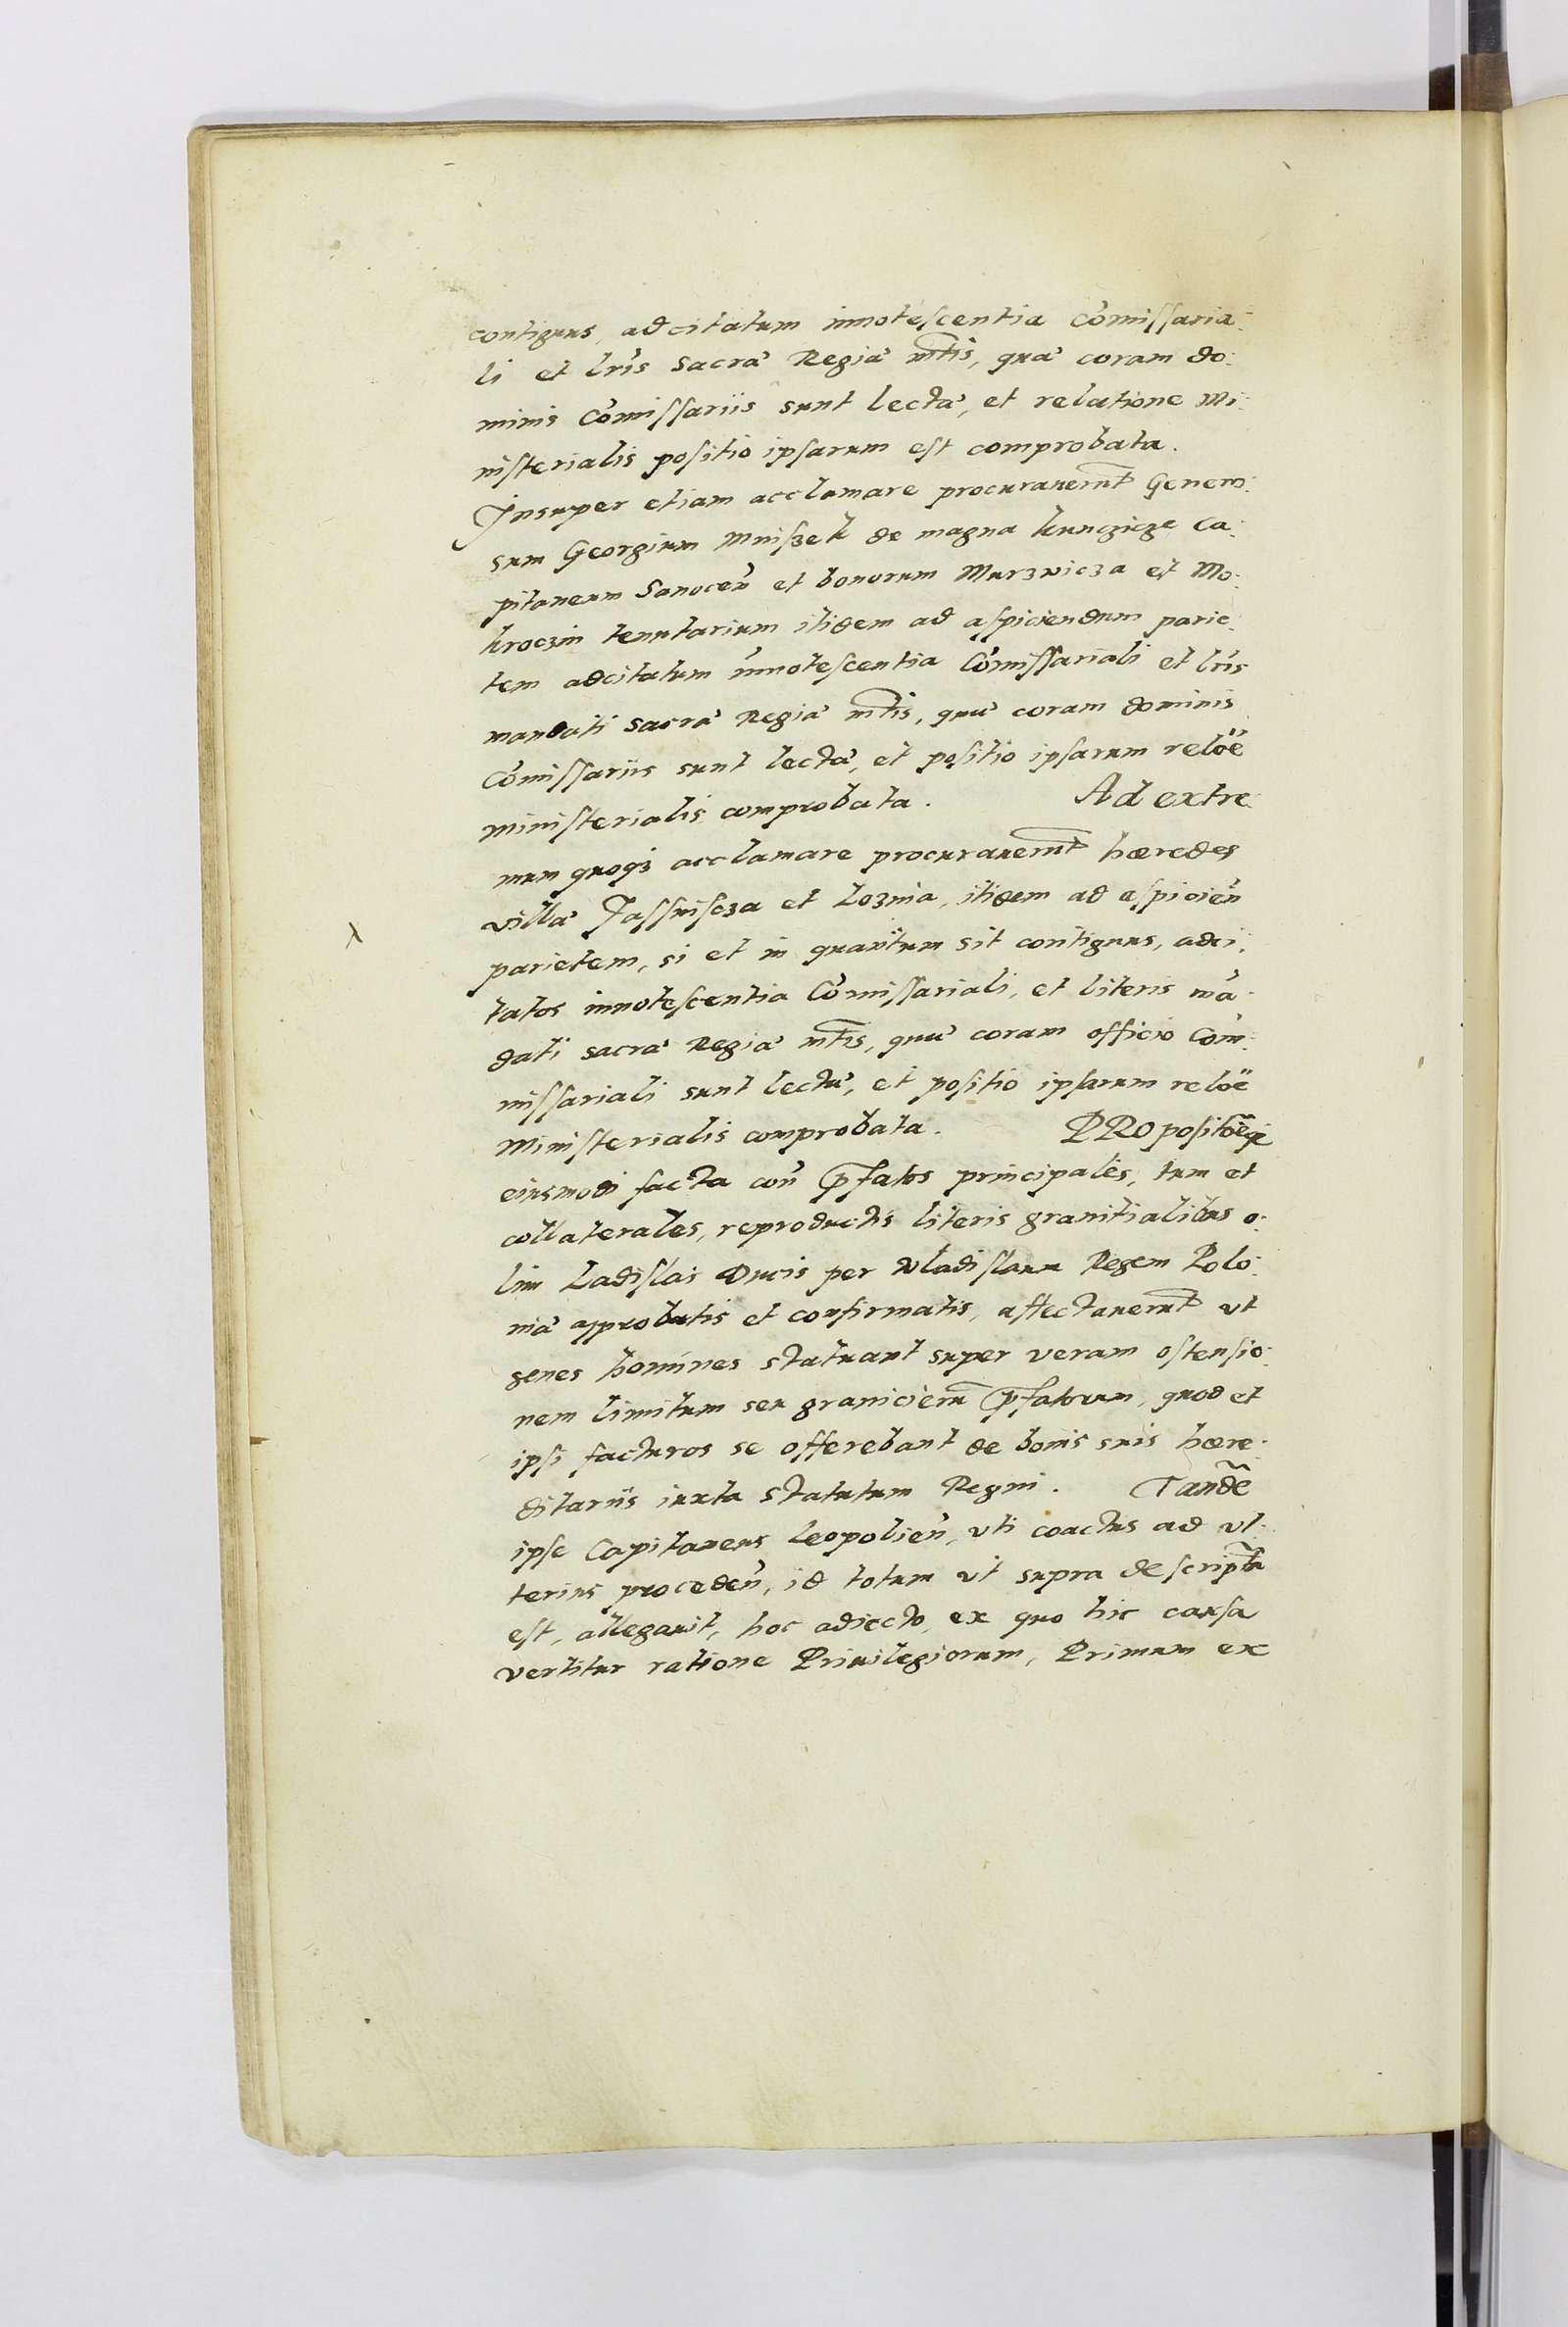 contiguus, adcitatum innotescentia Com̄issaria:
li et lr̄is Sacræ Regiæ mt̄is, quæ coram do:
minis Com̄issariis sunt lectæ, et relatione Mi:
nisterialis positio ipsarum est comprobata.
Insuper etiam acclamare procurauerun̄t Genero:
sum Georgium Mniszek de magna kunczicze Ca:
pitaneum Sanocen̄ et bonorum Murzwicza et Mo:
kroczin tenutarium itidem ad aspiciendum parie:
tem adcitatum innotescentia Com̄issariali et lr̄is
mandati Sacræ Regiæ mt̄is, quæ coram dominis
Com̄issariis sunt lectæ, et positio ipsarum relōe
ministerialis comprobata. Ad extre:
mum quoqз acclamare procurauerun̄t hæredes
villæ Jassniscza et Loznia, itidem ad aspicien̄
parietem, si et in quantum sit contiguus, adci:
tatos innotescentia Com̄issariali, et literis mā:
dati sacræ Regiæ mt̄is, quæ coram officio Com̄:
missariali sunt lectæ, et positio ipsarum relōe
Ministerialis comprobata. PROpositōeqз
eiusmodi facta con̄ p̄fatos principales, tum et
collaterales, reproductis literis granitialibus o:
lim Ladislai Ducis per Vladislaum Regem Polo:
niæ approbatis et confirmatis, affectauerun̄t vt
senes homines statuant super veram ostensio:
nem limitum seu granicierū p̄fatorum, quod et
ipsi facturos se offerebant de bonis suis hære:
ditariis iuxta statutum Regni. Tandē
ipse Capitaneus Leopolien̄, vti coactus ad vl:
terius proceden̄, id totum vt supra descriptū
est, allegauit, hoc adiecto, ex quo hic causa
vertitur ratione Priuilegiorum, Primum ex